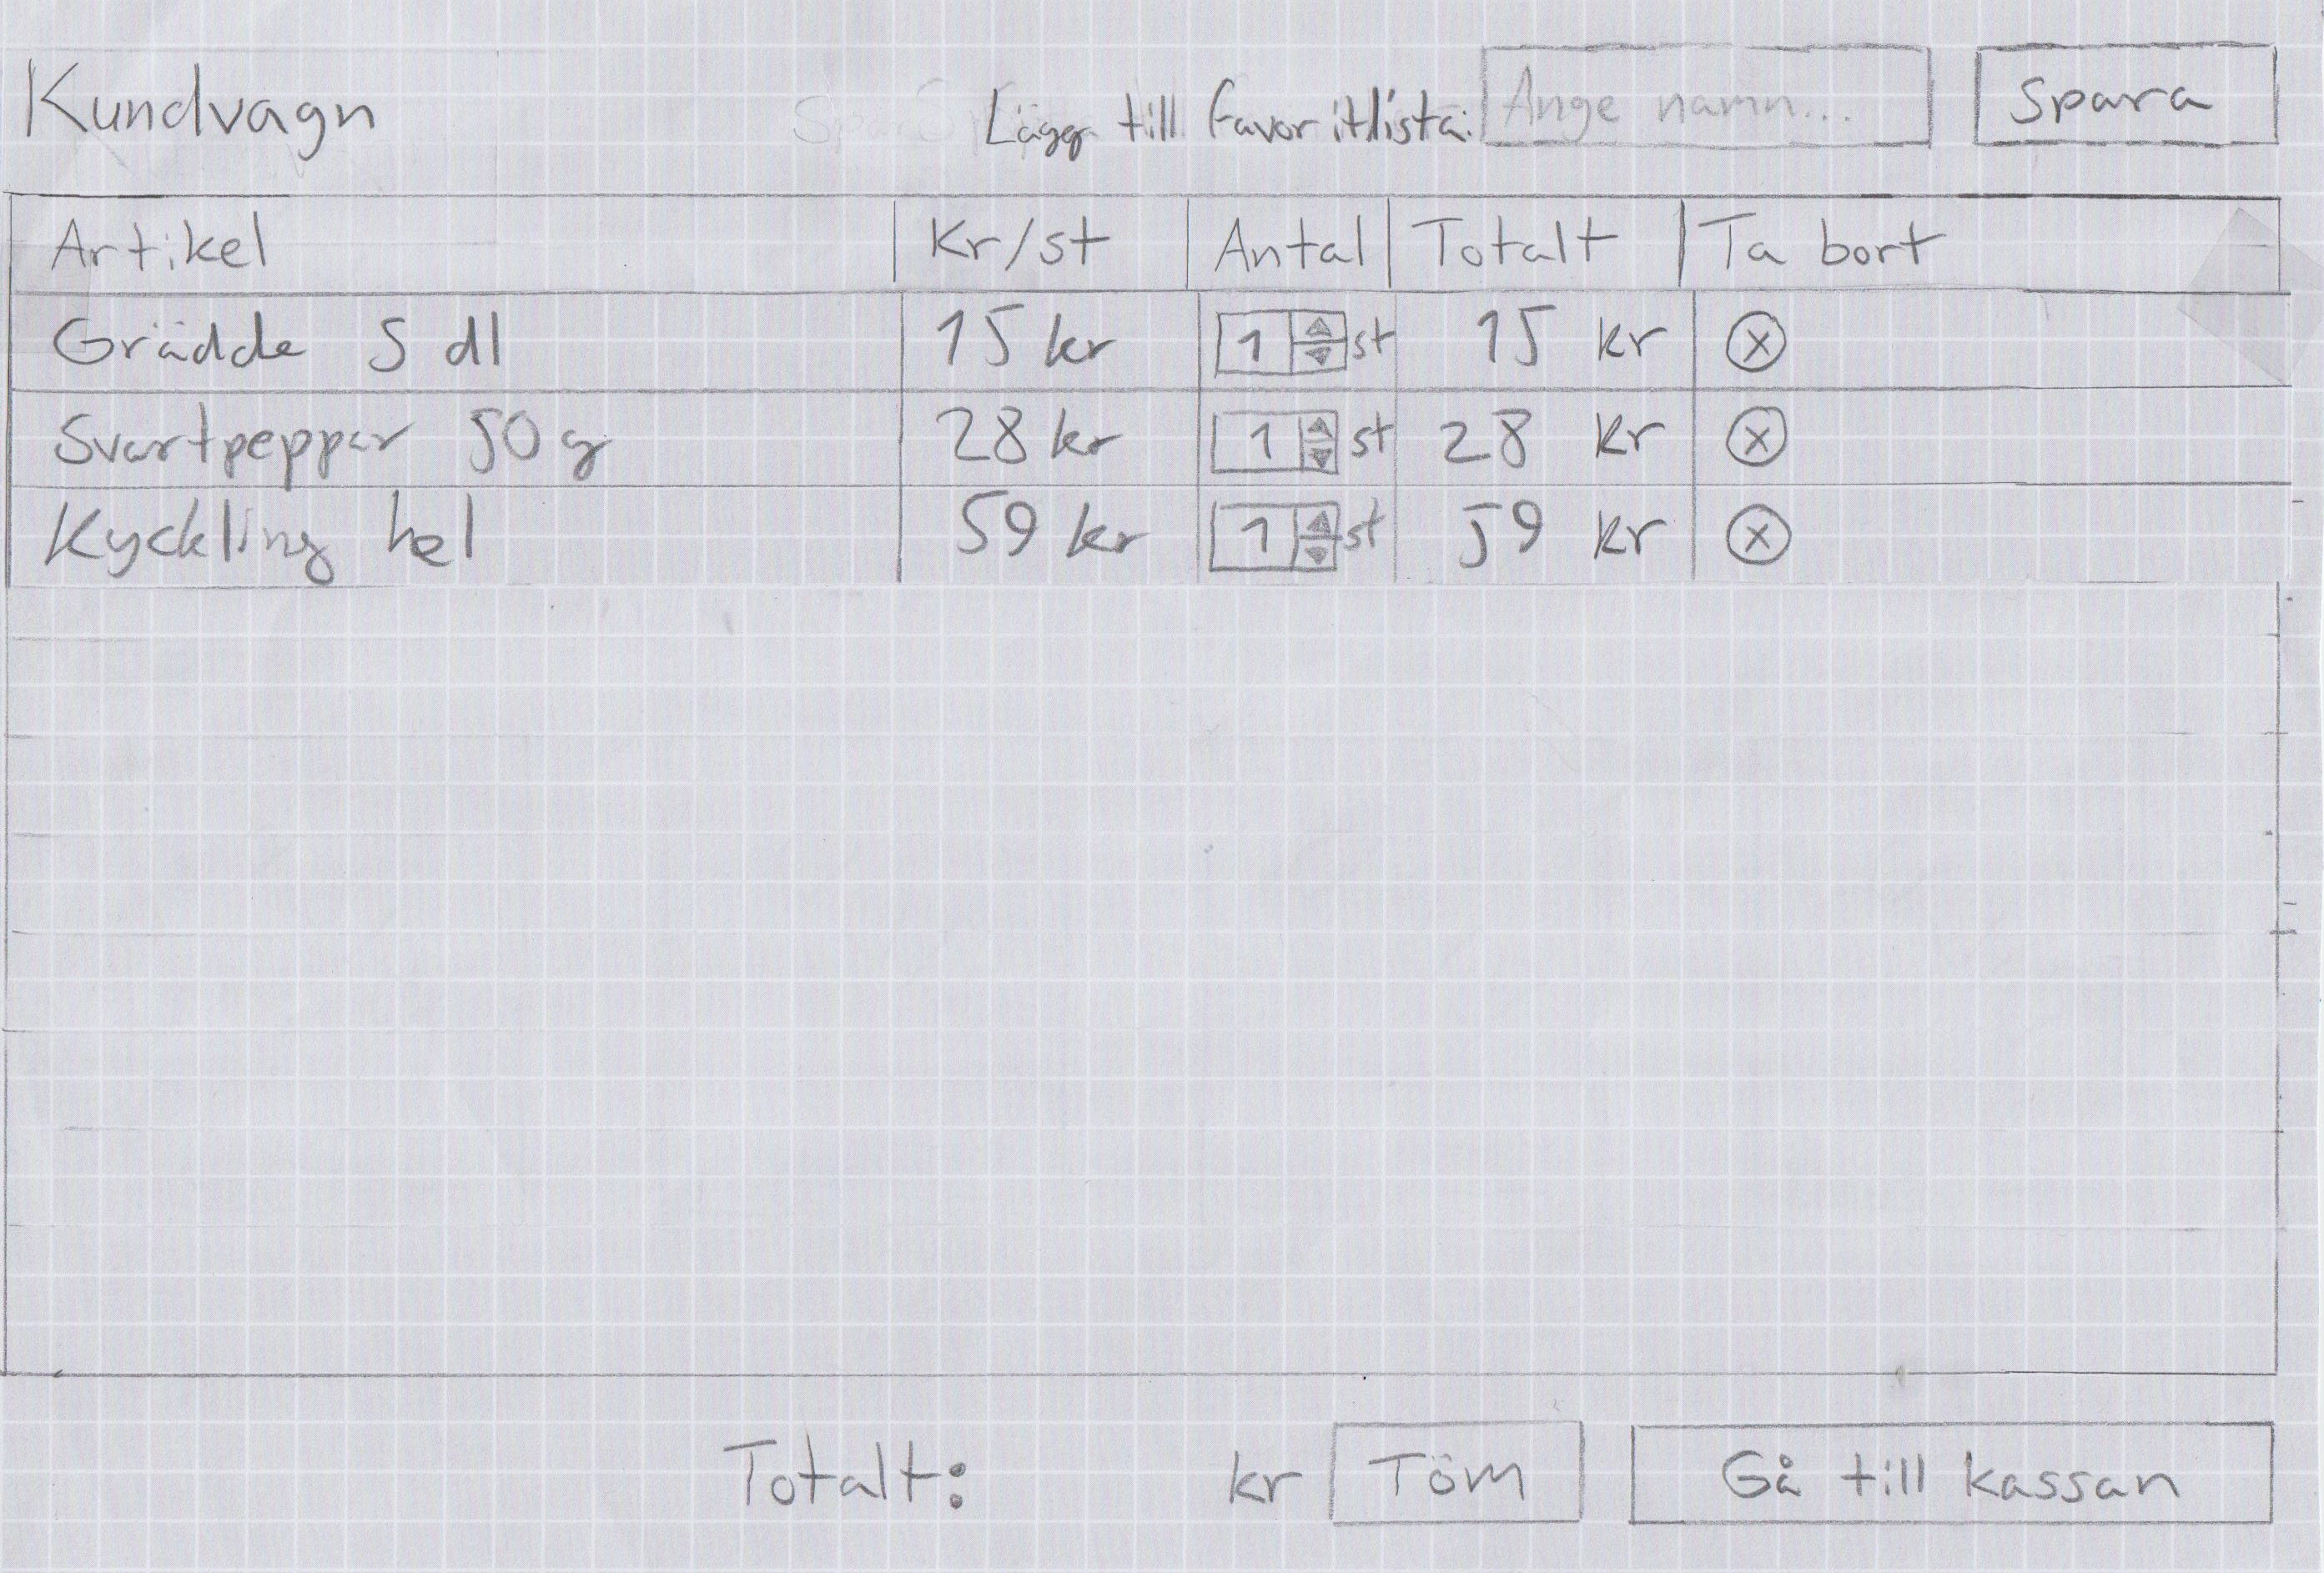 Kundvagn Lägg till favoritlista: Ange namn... Spara
Artikel Kr/st Antal Totalt Ta bort
Grädde 5 dl 15 kr 1 st 15 kr x
Svartpeppar 50 g 28 kr 1 st 28 kr x
Kyckling hel 59 kr 1 st 59 kr x
Totalt: kr Töm Gå till kassan